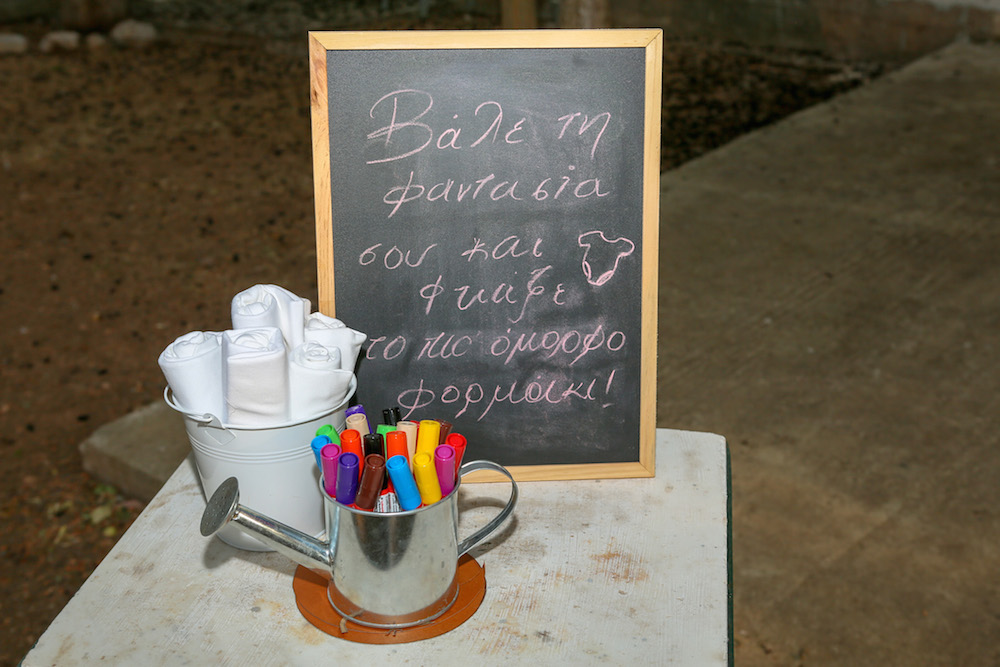 Βάλε τη
φαντασία
σου και
φτιάξε
το πιο όμορφο
φορμάκι!